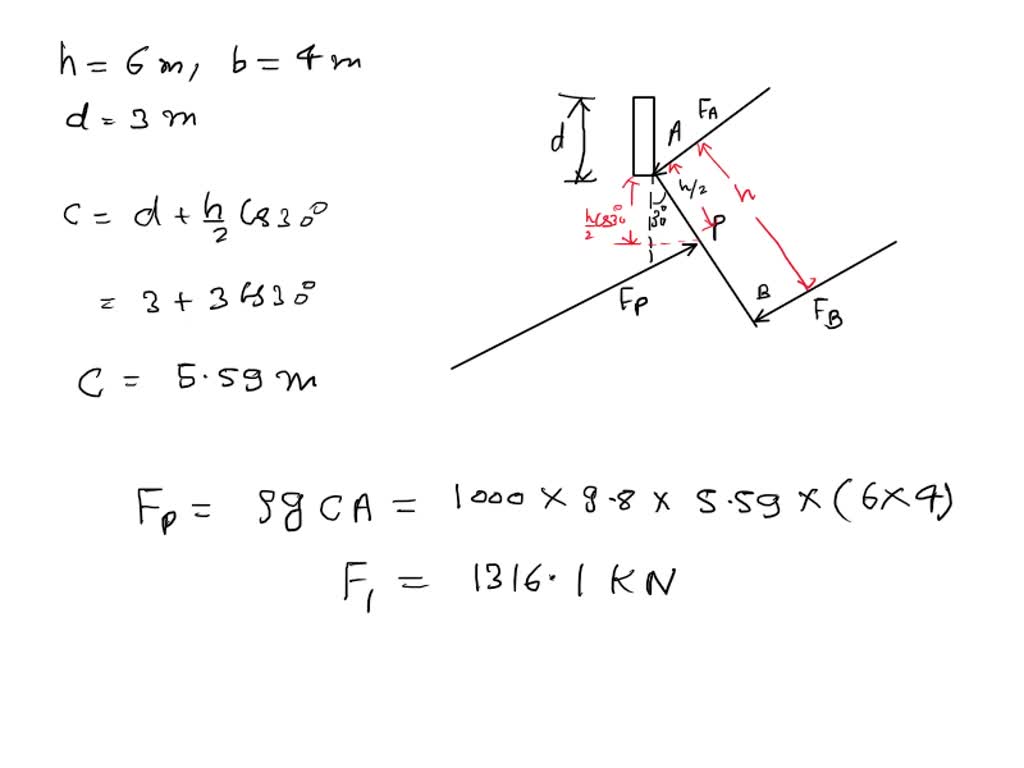 h = 6 m, b = 4 m
d = 3 m
C = d + h/2 Cos 30°
= 3 + 3 Cos 30°
C = 5.59 m
d
A
FA
h/2
h
h/2 cos30°
30°
P
FP
B
FB
Fp = ρg C A = 1000 × 9.8 × 5.59 × (6×4)
F1 = 1316.1 KN